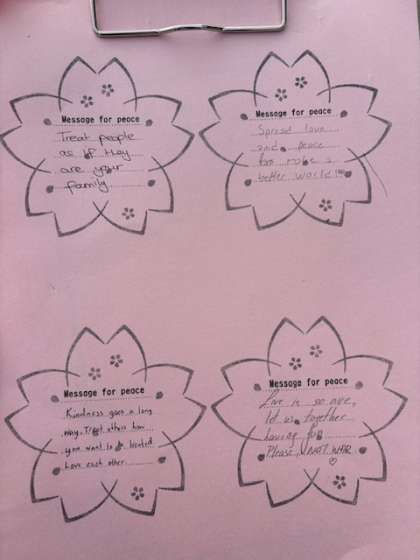 Message for peace
Treat people
as if they
are your
family
Message for peace
Spread love
and peace
for make a
better world!!
Message for peace
Kindness goes a long
way. Treat others how
you want to be treated
Love each other
Message for peace
Live is so nice,
let us together
having fun
Please, NOT WAR